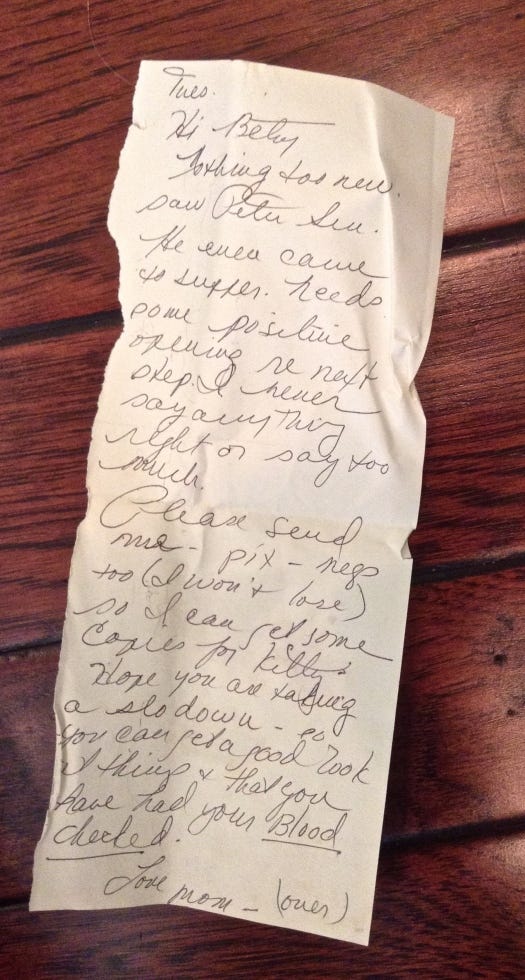 Tues.
Hi Betsy
Nothing too new.
saw Peter Sun.
He even came
to supper. Needs
some positive
opening re next
step. I never
say anything
right or say too
much.
Please send
me - pix - negs
too (I won't lose)
so I can get some
copies for Kitty.
Hope you are taking
a slo down - so
you can get a good look
at things & that you
have had your Blood
checked.
Love mom - (over)